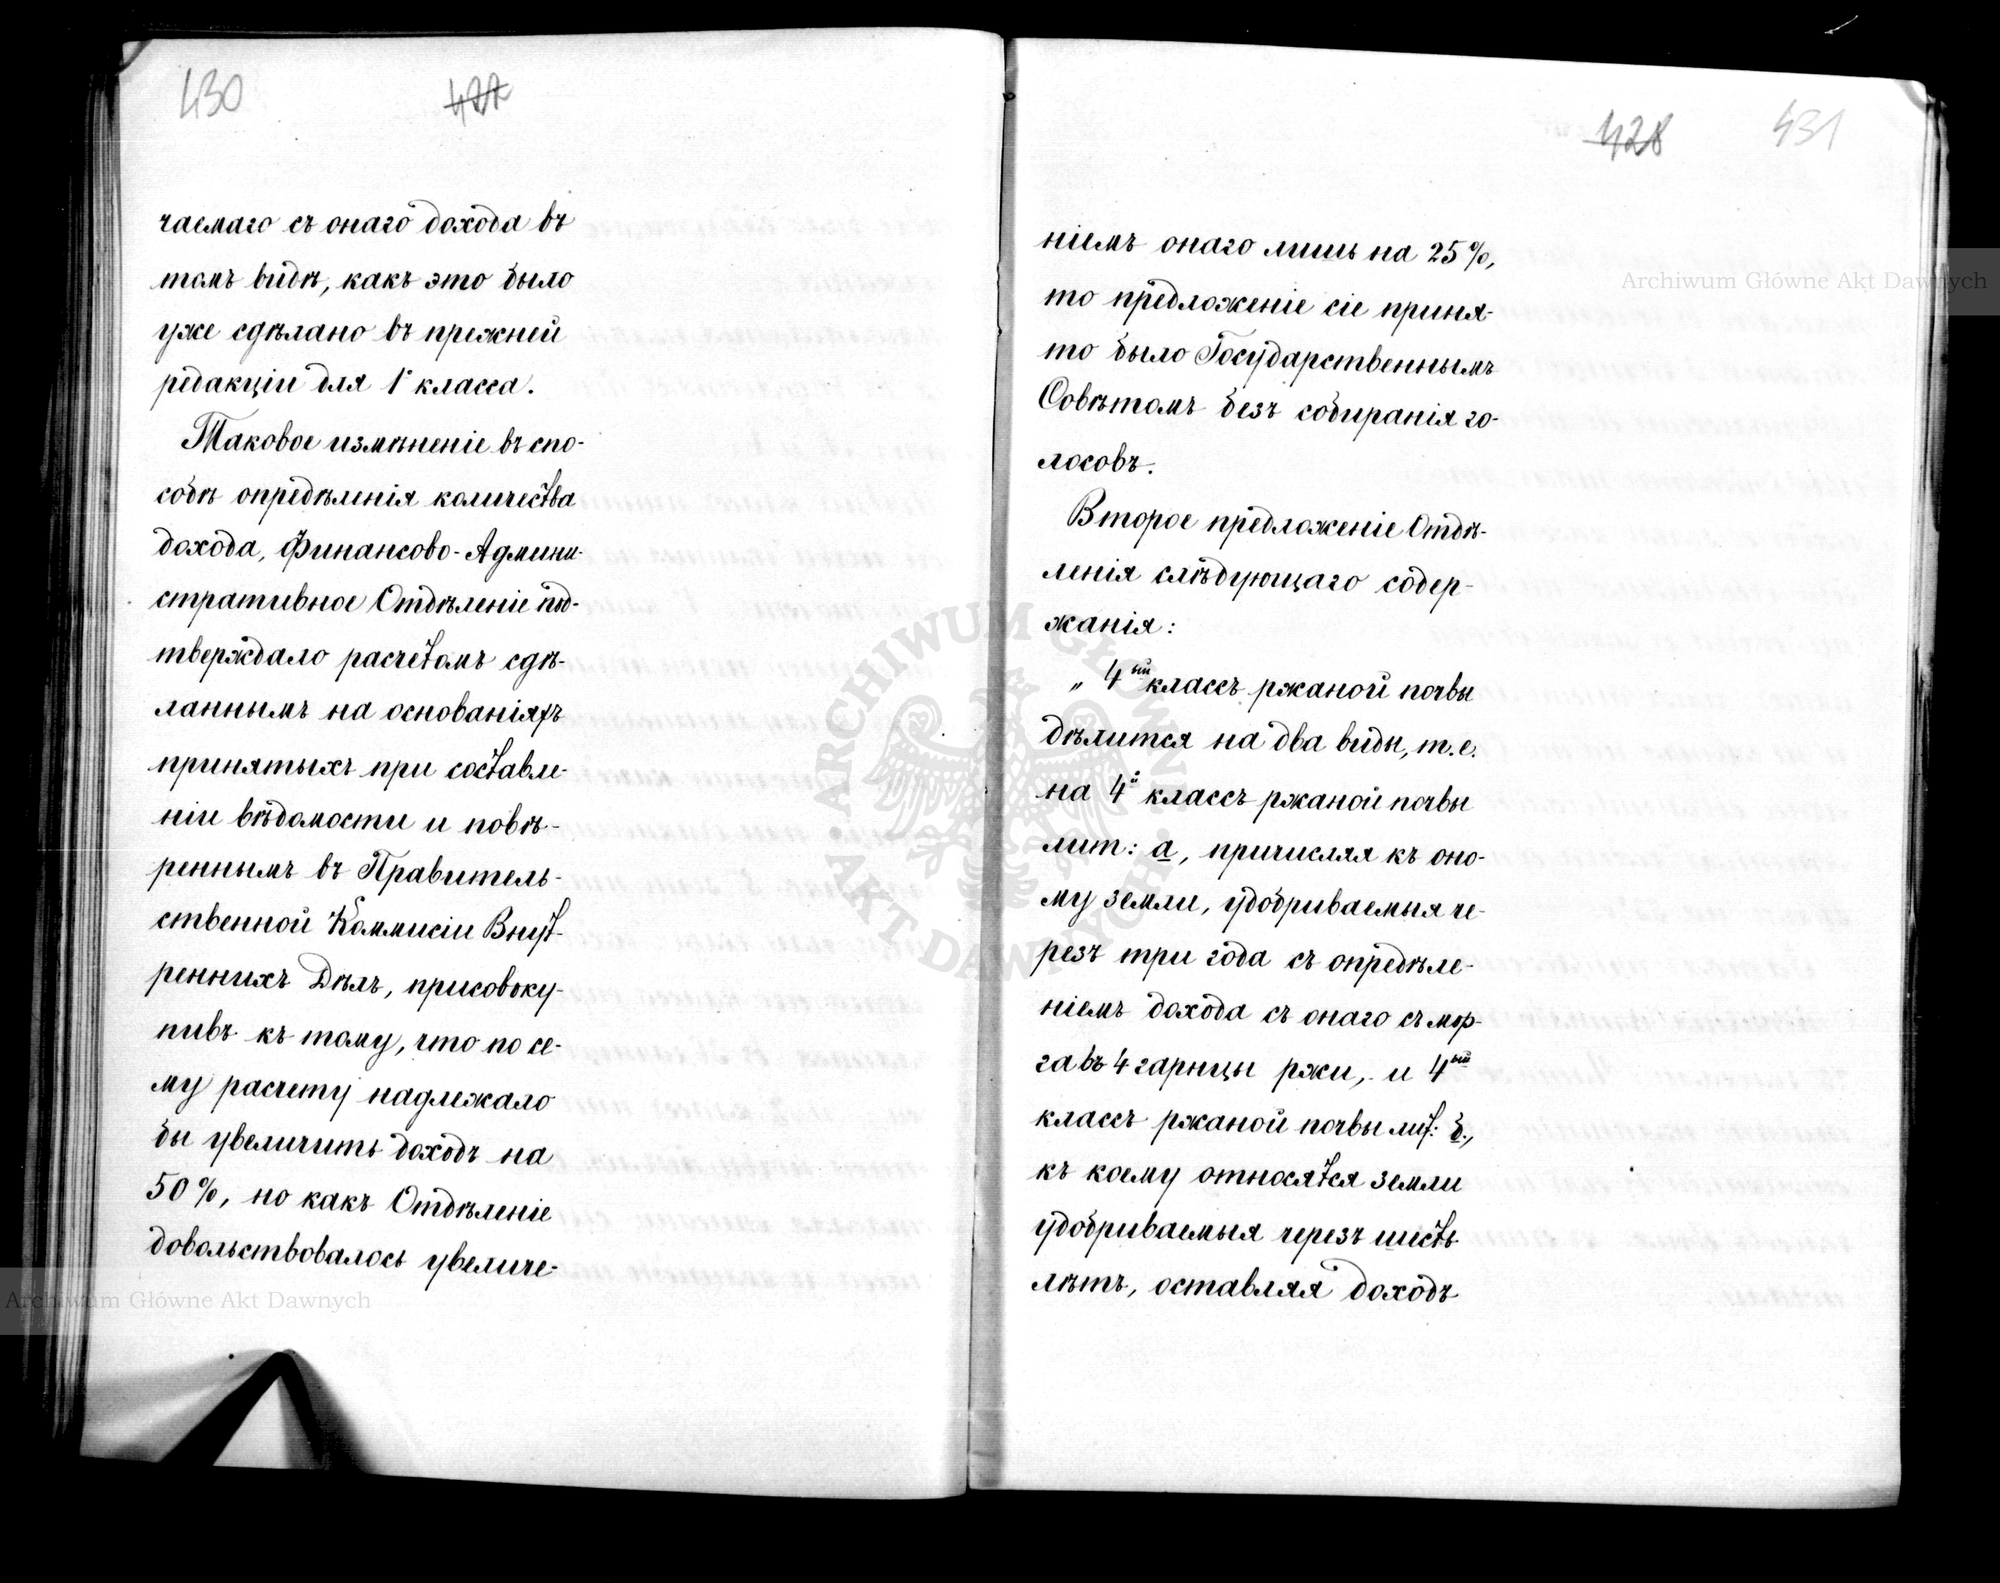 430 427
чаемаго съ онаго дохода въ
томъ видѣ, какъ это было
уже сдѣлано въ прежней
редакціи для 1 класса.
Таковое измѣненіе въ спо-
собѣ опредѣленія количества
дохода, Финансово-Админи-
стративное Отдѣленіе под-
тверждало расчетомъ сдѣ-
ланнымъ на основаніяхъ
принятыхъ при составле-
ніи вѣдомости и повѣ-
реннымъ въ Правитель-
ственной Коммисіи Внут-
реннихъ Дѣлъ, присовоку-
пивъ къ тому, что по се-
му расчету надлежало
бы увеличить доходъ на
50%, но какъ Отдѣленіе
довольствовалось увеличе-
428 431
ніемъ онаго лишь на 25%,
то предложеніе сіе приня-
то было Государственнымъ
Совѣтомъ безъ собиранія го-
лосовъ.
Второе предложеніе Отдѣ-
ленія слѣдующаго содер-
жанія:
„ 4ый классъ ржаной почвы
дѣлится на два виды, т.е.
на 4й классъ ржаной почвы
лит: а, причисляя къ оно-
му земли, удобриваемыя че-
резъ три года съ опредѣле-
ніемъ дохода съ онаго съ мор-
га въ 4 гарнцы ржи, и 4ый
классъ ржаной почвы лит: б.,
къ коему относятся земли
удобриваемыя черезъ шесть
лѣтъ, оставляя доходъ
Archiwum Główne Akt Dawnych
Archiwum Główne Akt Dawnych
ARCHIWUM GŁÓWNE AKT DAWNYCH